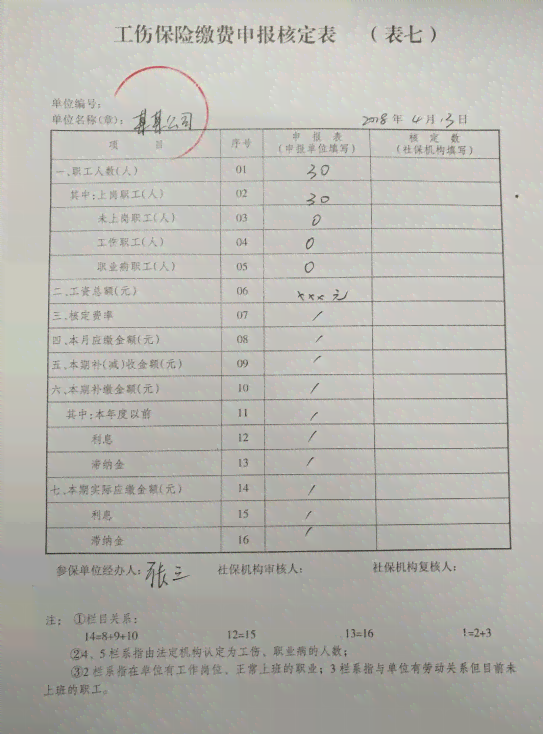 工伤保险缴费申报核定表 （表七）
单位编号:
单位名称(章): 某某公司 2018 年 4 月 13 日
项 目 序号 申 报 表 (申报单位填写) 核 定 数 (社保机构填写)
一、职工人数(人) 01 30
其中:上岗职工(人) 02 30
未上岗职工(人) 03 0
工伤职工(人) 04 0
职业病职工(人) 05 0
二、工资总额(元) 06 xxx元
三、核定费率 07 /
四、本月应缴金额(元) 08 /
五、本期补(减)收金额(元) 09 /
六、本期补缴金额(元) 10 /
其中:本年度以前 11 /
利息 12 /
滞纳金 13 /
七、本期实际应缴金额(元) 14 /
利息 15 /
滞纳金 16 /
参保单位经办人: 张三 社保机构审核人: 社保机构复核人:
注: ①栏目关系:
14=8+9+10 12=15 13=16 1=2+3
②4、5栏系指由法定机构认定为工伤、职业病的人数;
③2栏系指在单位有工作岗位、正常上班的职业;3栏系指与单位有劳动关系但目前未
上班的职工。